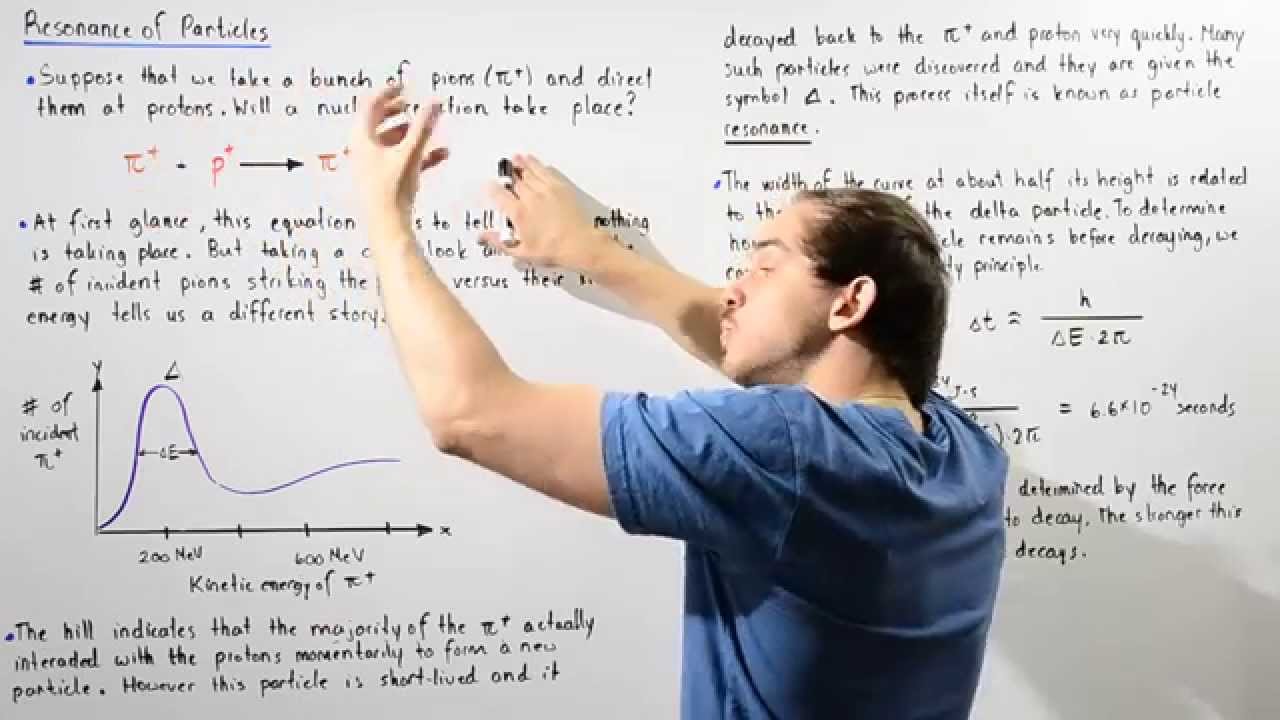 Resonance of Particles
•Suppose that we take a bunch of pions (π⁺) and direct
them at protons. Will a take place?
π⁺ - p⁺ → π⁺
•At first glance, this equation to tell nothing
is taking place. But taking a look
# of incident pions striking the versus their
energy tells us a different story.
y
Δ
# of
incident
π⁺
ΔE
x
200 MeV
600 MeV
Kinetic energy of π⁺
•The hill indicates that the majority of the π⁺ actually
interacted with the protons momentarily to form a new
particle. However this particle is short-lived and it
decayed back to the π⁺ and proton very quickly. Many
such particles were discovered and they are given the
symbol Δ. This process itself is known as particle
resonance.
•The width of the curve at about half its height is related
to the the delta particle. To determine
remains before decaying, we
principle.
Δt ≈ h / ΔE·2π
J·s
·2π
= 6.6×10⁻²⁴ seconds
determined by the force
to decay. The stronger this
decays.